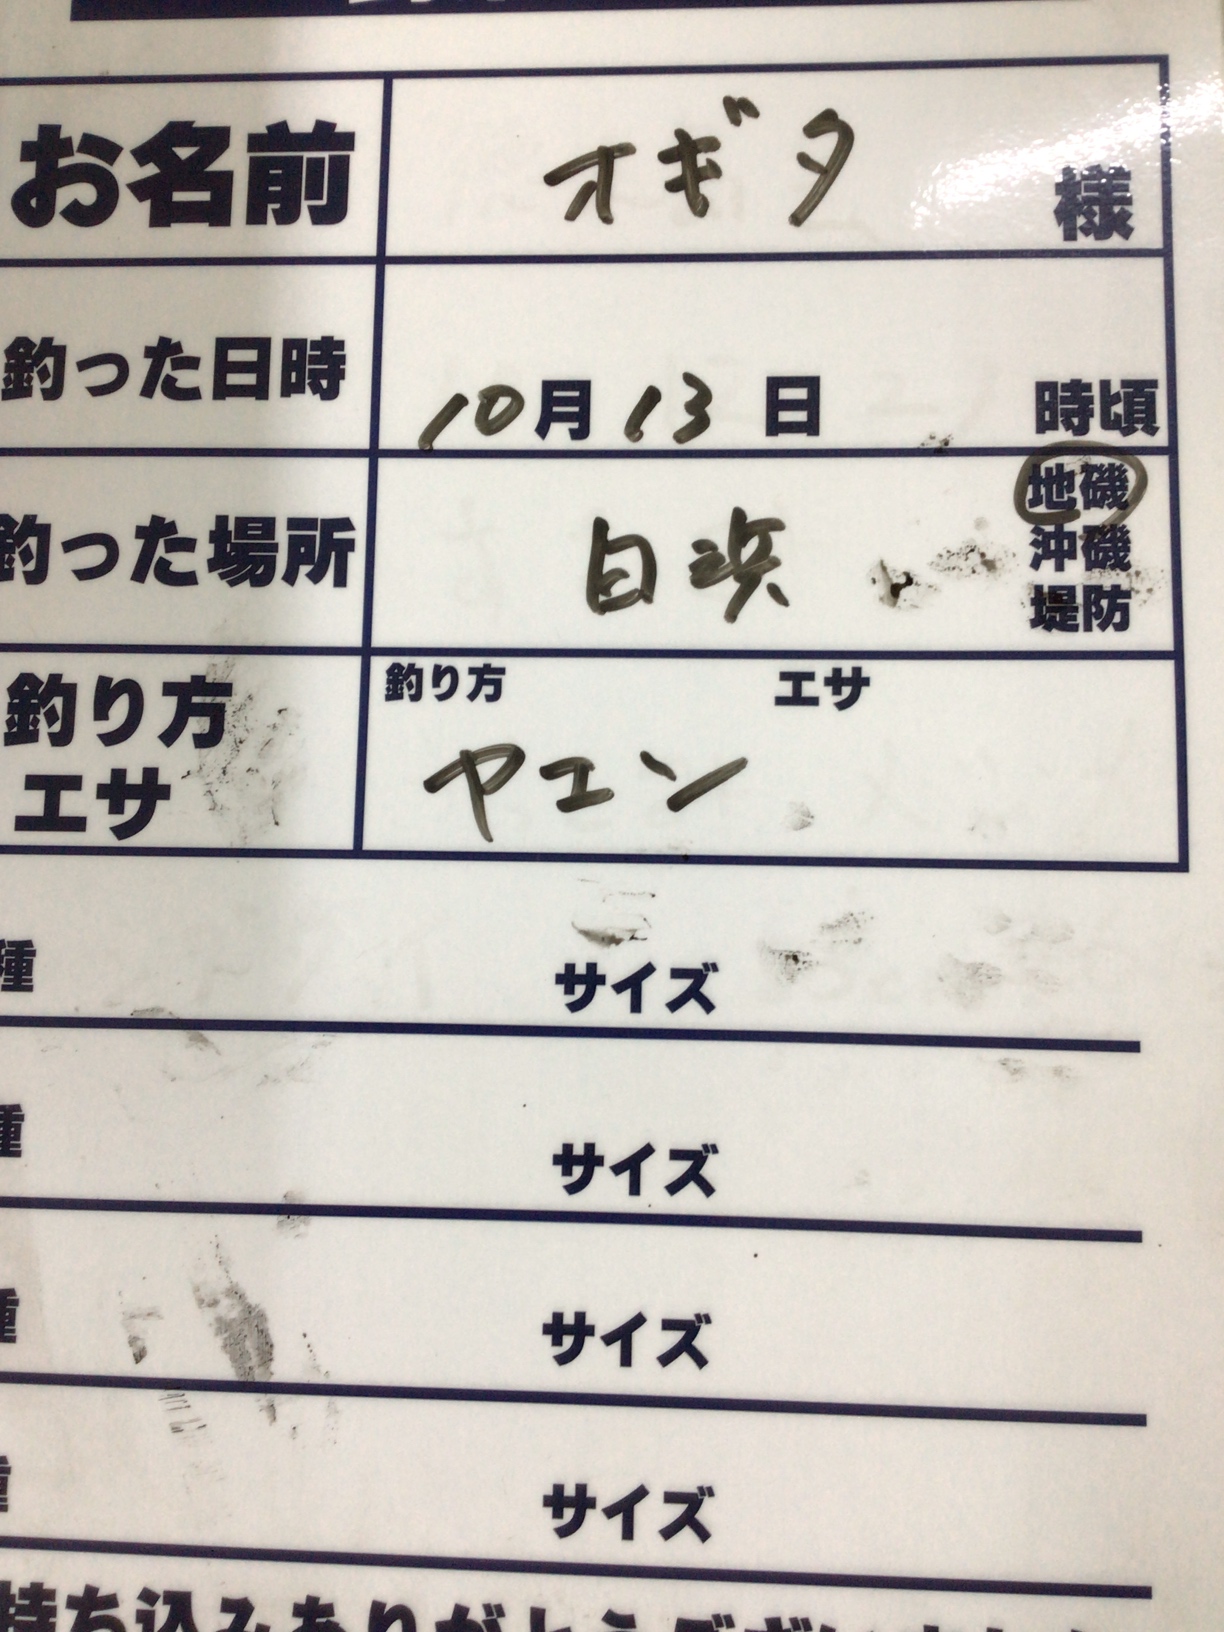 お名前 オギタ 様
釣った日時 10月13日 時頃
釣った場所 白浜 地磯
沖磯
堤防
釣り方 釣り方 エサ
エサ ヤエン
種 サイズ
種 サイズ
種 サイズ
種 サイズ
持ち込みありがとうございました